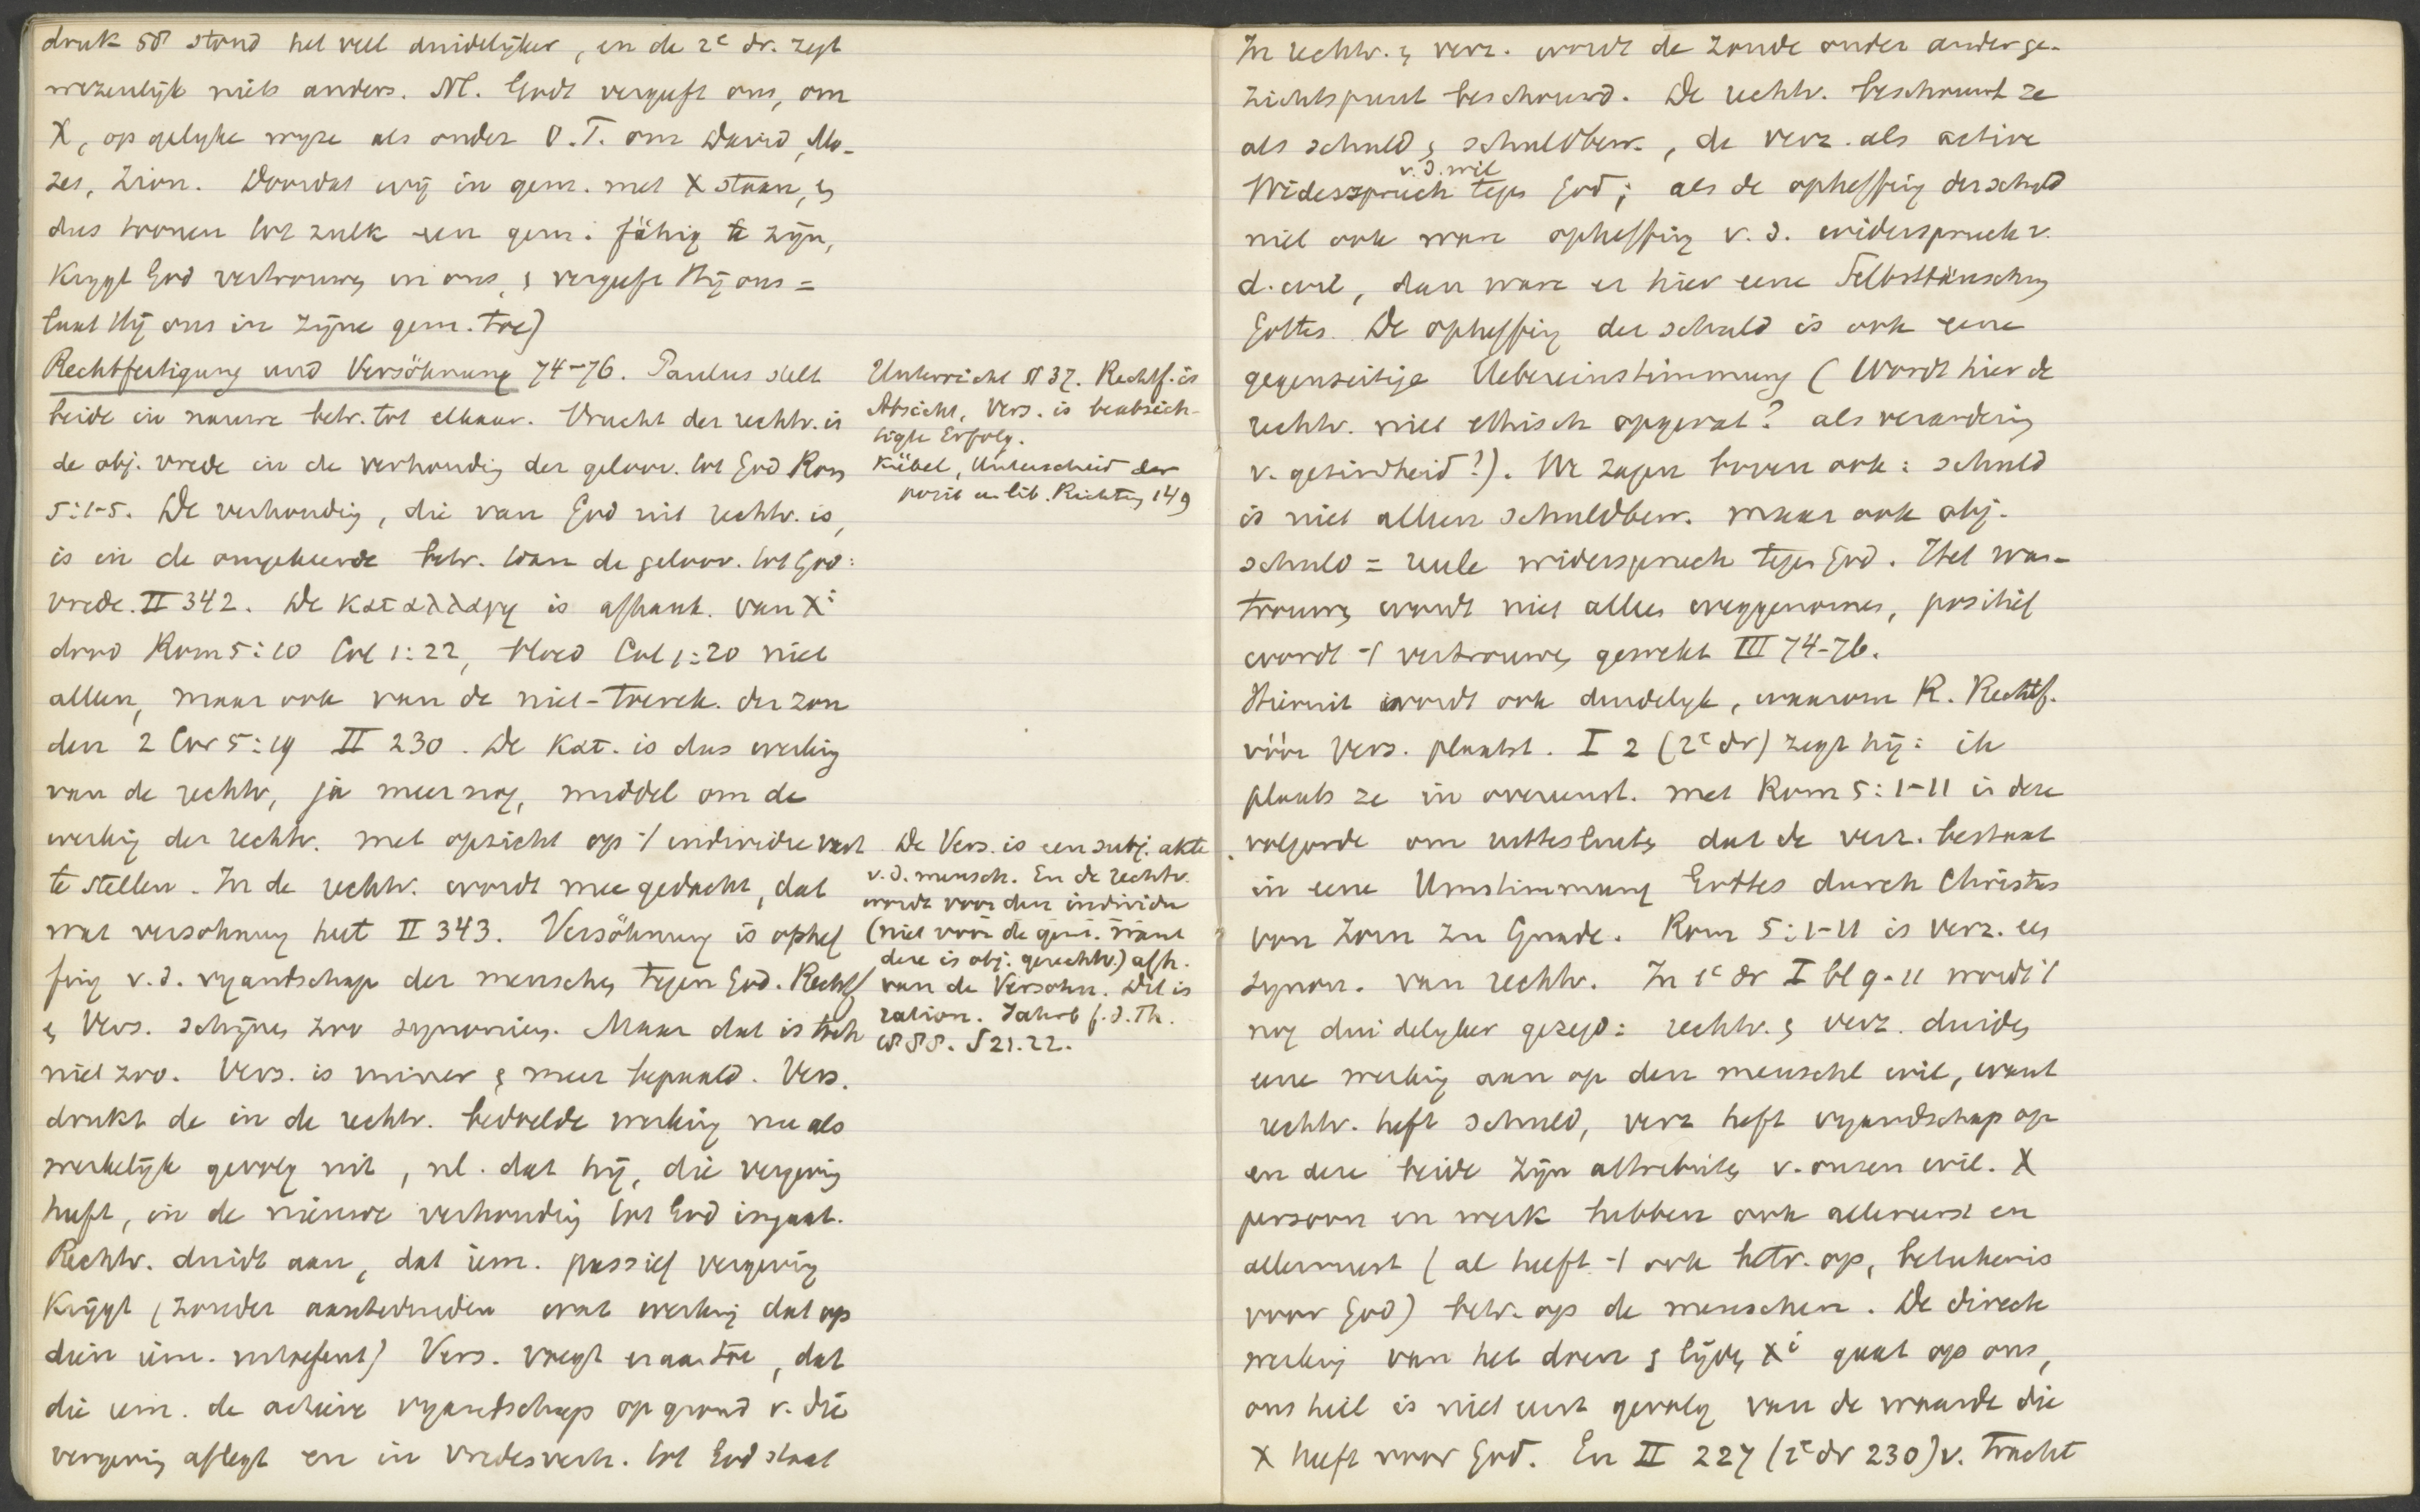 druk 58 stond het veel duidelijker, en de 2e dr. zegt
wezenlijk niets anders. Nl. Godt vergeeft ons, om
X, op gelijke wyze als onder O.T. om David, Mo-
zes, Zion. Doordat wij in gem. met X staan, &
dus toonen tot zulk een gem. fähig te zijn,
Krygt God vertrouwen in ons, & vergeeft Hij ons =
laat Hij ons in zijne gem. toe)
Rechtfertigung und Versöhnung 74-76. Paulus stelt
beide in nauwe betr. tot elkaar. Vrucht der rechtv. is
de obj. vrede in de verhouding der geloov. tot God Rom
5:1-5. De verhouding, die van God uit rechtv. is,
is in de omgekeerde betr. van de geloov. tot God:
vrede. II 342. De καταλλαγη is afhank. van Xi
dood Rom 5:10 Col 1:22, bloed Col 1:20 niet
alleen, maar ook van de niet-toerek. der zon
den 2 Cor 5:19 II 230. De κατ. is dus werking
van de rechtv, ja meer nog, middel om de
werking der rechtv. met opzicht op 't individu vast
te stellen. In de rechtv. wordt mee gedacht, dat
wat versohnung heet II 343. Versöhnung is ophef
fing v.d. vyandschap der menschen tegen God. Rechtf
& Vers. schijnen zoo synoniem. Maar dat is toch
niet zoo. Vers. is ruimer & meer bepaald. Vers.
drukt de in de rechtv. bedoelde werking nu als
werkelijk gevolg uit, nl. dat hij, die vergeving
heeft, in de nieuwe verhouding tot God ingaat.
Rechtv. duidt aan, dat iem. passief vergeving
Krijgt (zonder aanteduiden wat werking dat op
dien iem. uitoefent) Vers. voegt eraan toe, dat
die iem. de actieve vyandschap op grond v. die
vergeving aflegt en in vredesverh. tot God staat
Unterricht § 37. Rechtf. is
Absicht, Vers. is beabsich-
tigte Erfolg.
Kübel, Unterscheid der
posit u. lib. Richtung 149
De Vers. is een subj. akte
v.d. mensch. En de rechtv.
wordt voor den individu
(niet voor de gem. want
deze is obj. gerechtv.) afh.
van de Versohn. Dit is
ration. Jahrb f.d.Th.
1888. S 21.22.
In rechtv. & verz. wordt de zonde onder ander ge-
zichtspunt beschouwd. De rechtv. beschouwt ze
als schuld & schuldbew., de verz. als active
v.d. wil
Widerspruch tegen God; als de opheffing der schuld
niet ook ware opheffing v.d. widerspruch v.
d. wil, dan ware er hier eene Selbsttäuschung
Gottes. De opheffing der schuld is ook eene
gegenseitige Uebereinstimmung (Wordt hier de
rechtv. niet ethisch opgevat? als verandering
v. gezindheid?). We zagen boven ook: schuld
is niet alleen schuldbew. maar ook obj.
schuld = reele widerspruch tegen God. Het wan-
trouwen wordt niet alleen weggenomen, positief
wordt 't vertrouwen gewekt III 74-76.
Hieruit wordt ook duidelyk, waarom R. Rechtf.
vóór Vers. plaatst. I 2 (2e dr) zegt hij: ik
plaats ze in overeenst. met Rom 5:1-11 in deze
volgorde om uittesluiten dat de verz. bestaat
in eene Umstimmung Gottes durch Christus
von Zorn zu Gnade. Rom 5:1-11 is verz. een
synon. van rechtv. In 1e dr I bl 9-11 wordt 't
nog duidelyker gezegd: rechtv. & verz. duiden
eene werking aan op den menschl wil, want
rechtv. heft schuld, verz heft vyandschap op
en deze beide zijn attributen v. onzen wil. X
persoon en werk hebben ook allereerst en
allermeest (al heeft 't ook betr. op, beteekenis
voor God) betr. op de menschen. De directe
werking van het doen & lijden Xi gaat op ons,
ons heil is niet eerst gevolg van de waarde die
X heeft voor God. En II 227 (2e dr 230) v. tracht